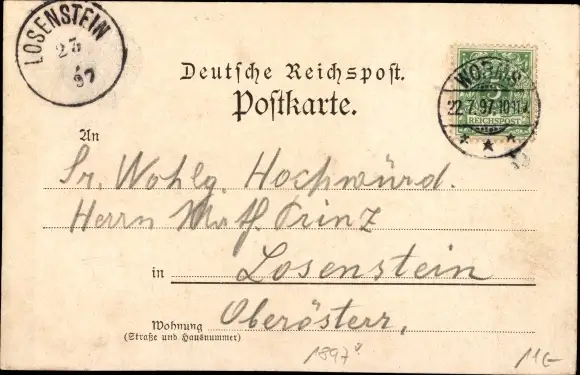 LOSENSTEIN
97
Deutsche Reichspost.
Postkarte.
WORMS
22.7.97.10-11V.
REICHSPOST
An
Sr. Wohlg. Hochwürd.
Herrn Math. Prinz
in Losenstein
Wohnung Oberösterr,
(Straße und Hausnummer)
1897
11E-